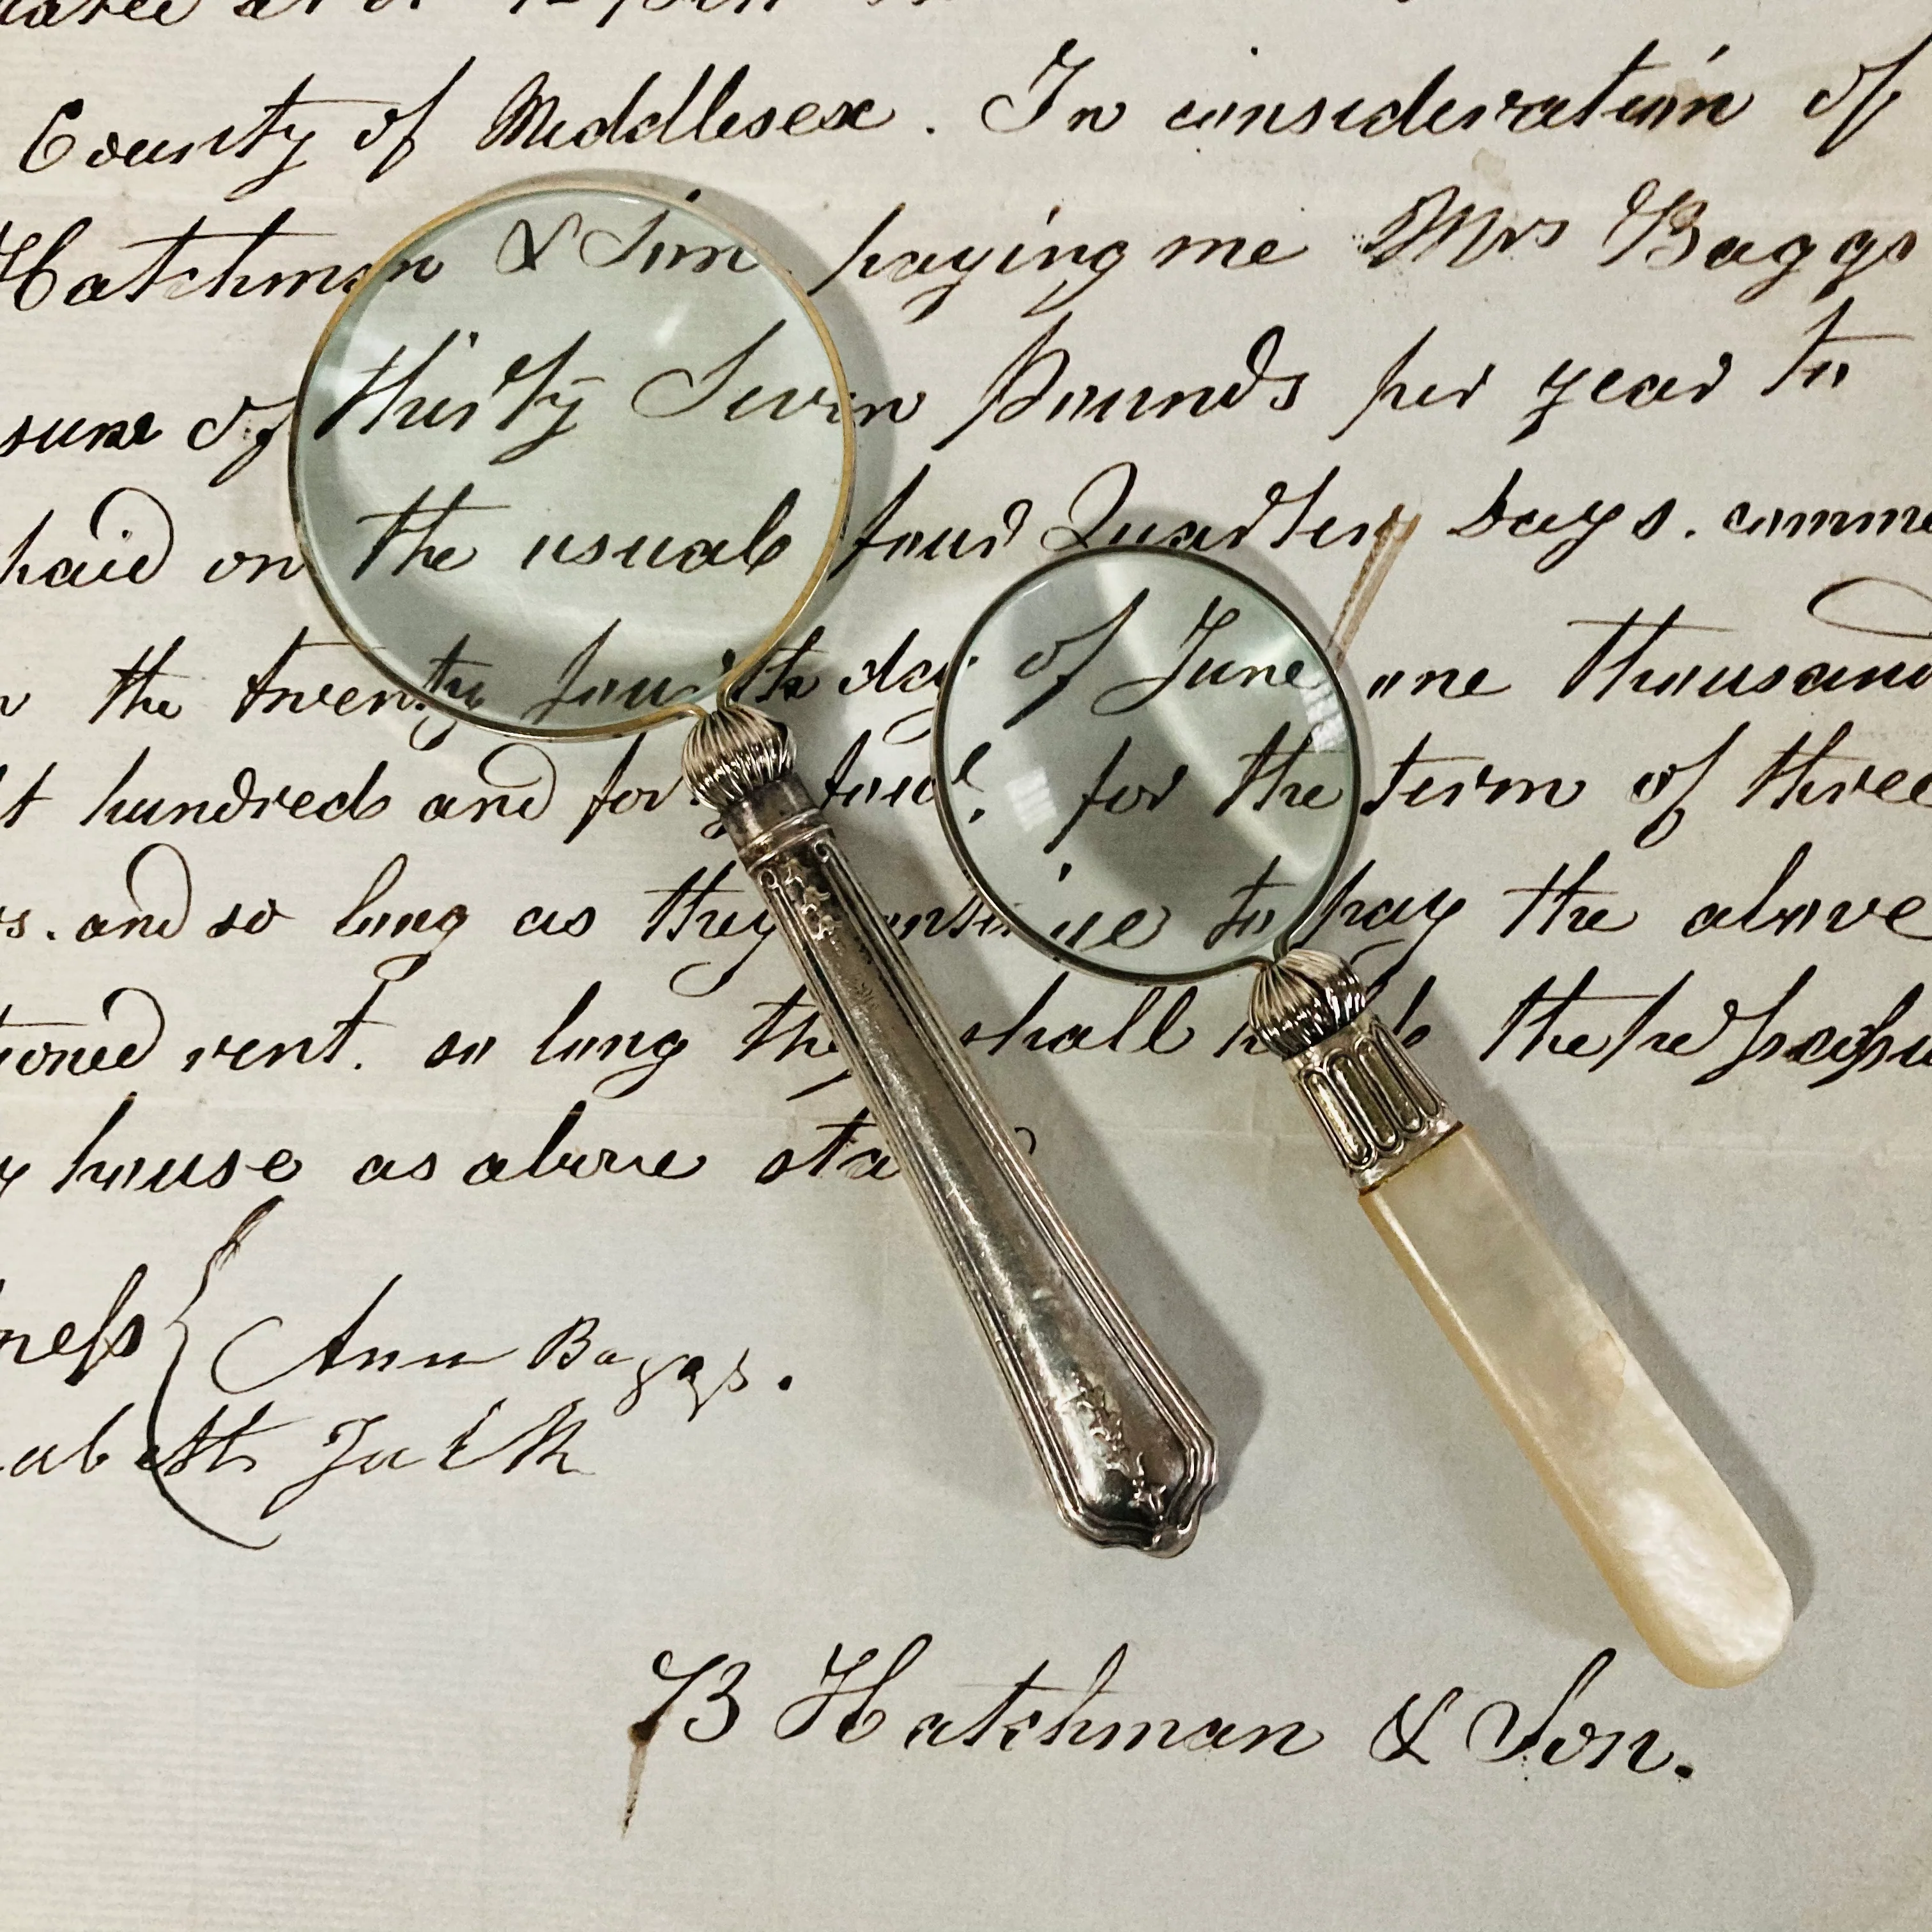 County of Middlesex. In consideration of
Hatchman & Son paying me Mrs Baggs
sum of thirty Seven Pounds per year to
paid on the usual four Quarter days. comme
the twenty fourth day of June one thousand
hundred and forty four, for the term of three
and so long as they continue to pay the above
tioned rent. so long they shall the
house as above sta
neſs { Ann Baggs.
abeth
B Hatchman & Son.